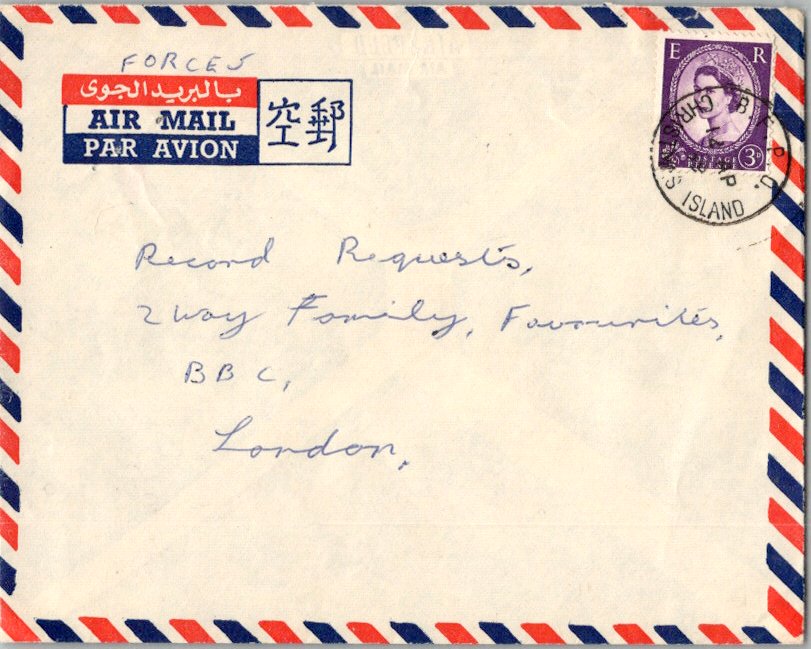 FORCES
بالبريد الجوى
AIR MAIL
PAR AVION
空郵
E R
POSTAGE 3D
B.F.P.O.
CHRISTMAS ISLAND
14 AP
Record Requests,
2 Way Family, Favourites,
BBC,
London.